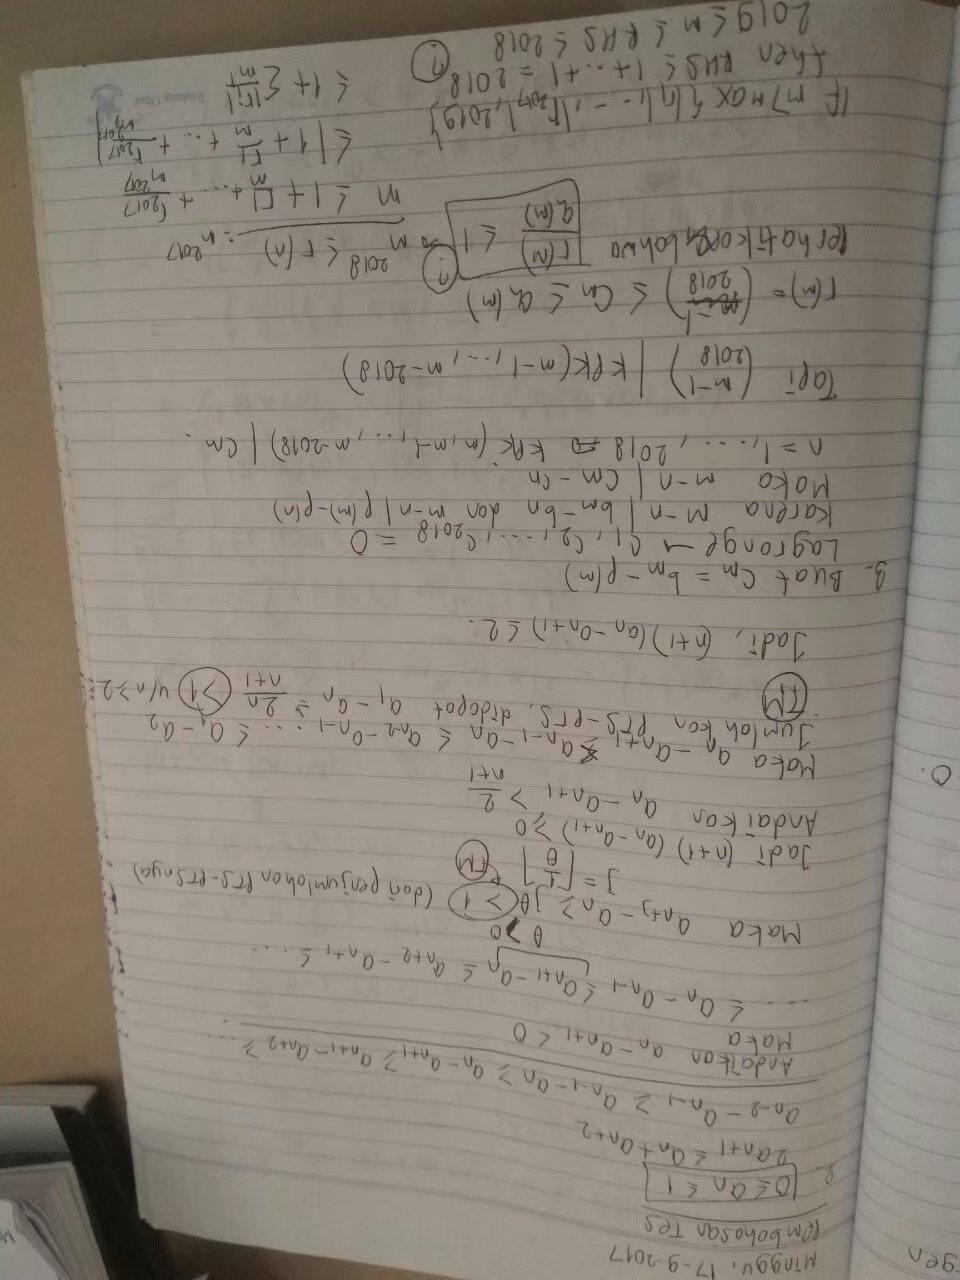 gen
Minggu, 17-9-2017
Pembahasan Tes
2. 0 ≤ an ≤ 1
2an+1 ≤ an + an+2
an-2 - an-1 ≥ an-1 - an ≥ an - an+1 ≥ an+1 - an+2 ≥ ...
Andaikan an - an+1 < 0
Maka
.... ≤ an - an-1 ≤ an+1 - an ≤ an+2 - an+1 ≤ ...
θ > 0
Maka an+j - an ≥ jθ > 1 (dari penjumlahan PTS-PTSnya)
j = ⌈1/θ⌉ TM
Jadi (n+1) (an - an+1) ≥ 0
Andaikan an - an+1 > 2/n+1
0.
Maka an - an+1 ≤ an-1 - an ≤ an-2 - an-1 ... ≤ a1 - a2
Jumlahkan PTS-PTS, didapat a1 - an ≥ 2n/n+1 > 1 u/n ≥ 2
TM
Jadi, (n+1)(an - an+1) ≤ 2.
3. Buat cm = bm - p(m)
Lagrange → c1, c2, ..., c2018 = 0
Karena m-n | bm - bn dan m-n | p(m) - p(n)
Maka m-n | cm - cn
n = 1, ..., 2018 ⇒ KPK (m, m-1, .., m-2018) | cm.
Tapi (m-1 2018) | KPK(m-1, .., m-2018)
r(m) = ( 2018) ≤ Cm ≤ q(m)
Perhatikan bahwa r(m)/q(m) ≤ 1 ? m^2018 ≤ r(n) = n^2017
m ≤ 1 + r1/m + ... + r2017/m^2017
≤ |1 + r1/m + .. + r2017/m^2017|
If m > max {|r1|, ..., |r2017|, 2019}
≤ 1 + Σ|ri|/m^i
Bintang Obor
then RHS ≤ 1 + .. + 1 = 2018 ?
2019 ≤ m ≤ RHS ≤ 2018